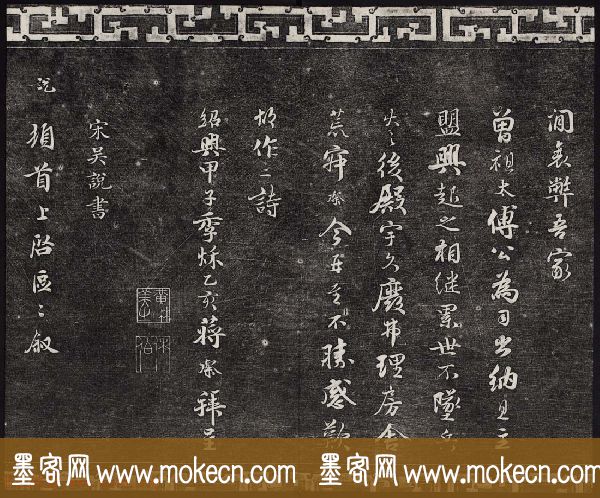 間衰弊吾家
曾祖太傅公為司出納見主
盟興起之相继累世不墜
後殿宇久廢弗理房舍
荒穽 今 不勝感歎
作二詩
紹興甲子季秋乙 蔣 拜呈
宋吴說書
說
頓首上啓區區叙
墨客网 www.mokecn.com 墨客网 www.mokecn.com